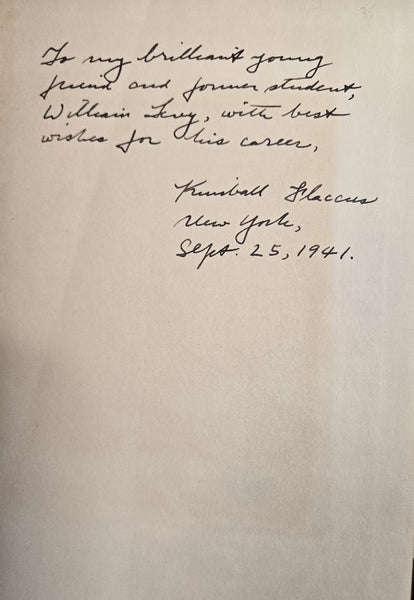 To my brilliant young
friend and former student,
William Levy, with best
wishes for his career,
Kimball Flaccus
New York,
Sept. 25, 1941.